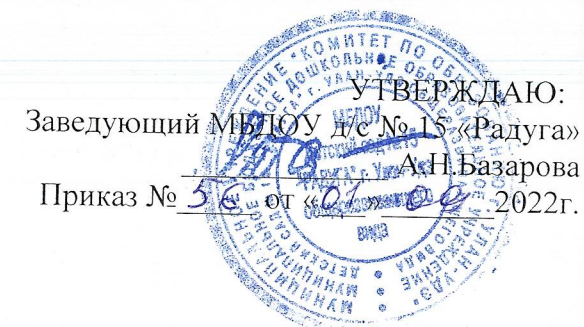 УТВЕРЖДАЮ:
Заведующий МБДОУ д/с № 15 «Радуга»
А.Н.Базарова
Приказ № 56 от «01» 09 2022г.